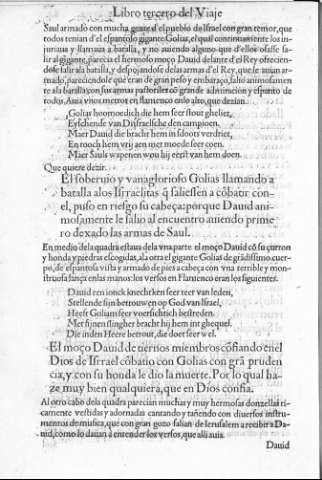 Libro tercero del Viaje
Saul armado con mucha gente d'el pueblo de Israel con gran temor, que
todos tenian d'el espantoso gigante Golias, el qual continuamente los in-
juriaua y llamaua a batalla, y no auiendo alguno que d'ellos osasse sa-
lir al gigante, parecia el hermoso moço Dauid delante d'el Rey ofrecien-
dose salir a la batalla, y despojandose de las armas d'el Rey, que le auian ar-
mado, pareciendole que eran de gran peso y embaraço, salio animosamen
te a la batalla con sus armas pastoriles cō grande admiracion y espanto de
todos. Auia vnos metros en flamenco en lo alto, que dezian.
Golias hoomoedich die hem seer stout gheliet,
Eyschende van Disraelsche den campoen,
Maer Dauid die bracht hem in sloors verdriet,
En rooch hem vrij aen met moede seer coen.
Maer Sauls wapenen wou hij eerst van hem doen.
Que quiere dezir.
El soberuio y vanaglorioso Golias llamando a
batalla a los Isrraelitas q̃ saliessen a cōbatir con-
el, puso en riesgo su cabeça: porque Dauid ani-
mosamente le salio al encuentro auiendo prime
ro dexado las armas de Saul.
En medio de la quadra estaua de la vna parte el moço Dauid cō su çurron
y honda y piedras escogidas, a la otra el gigante Golias de grādissimo cuer-
po, de espantosa vista y armado de pies a cabeça con vna terrible y mon-
struosa lança en las manos: los versos en Flamenco eran los siguientes.
Dauid een ionck knechtken seer teer van leden,
Stellende sijn betrouwen op God van Israel,
Heeft Goliam seer voorsichtich bestreden
Met sijnen slingher bracht hij hem int ghequel.
Die inden Heere betrout, die doet seer wel.
El moço Dauid de tiernos miembros cōfiando en el
Dios de Isrrael cōbatio con Golias con grā pruden
cia, y con su honda le dio la muerte. Por lo qual ha-
ze muy bien qualquiera, que en Dios confia.
Al otro cabo de la quadra parecian muchas y muy hermosas donzellas ri-
camente vestidas y adornadas cantando y tañendo con diuersos instru-
mentos de musica, que con gran gozo salian de Ierusalem a recibir a Da-
uid, como lo dauan à entender los versos, que alli auia.
Dauid